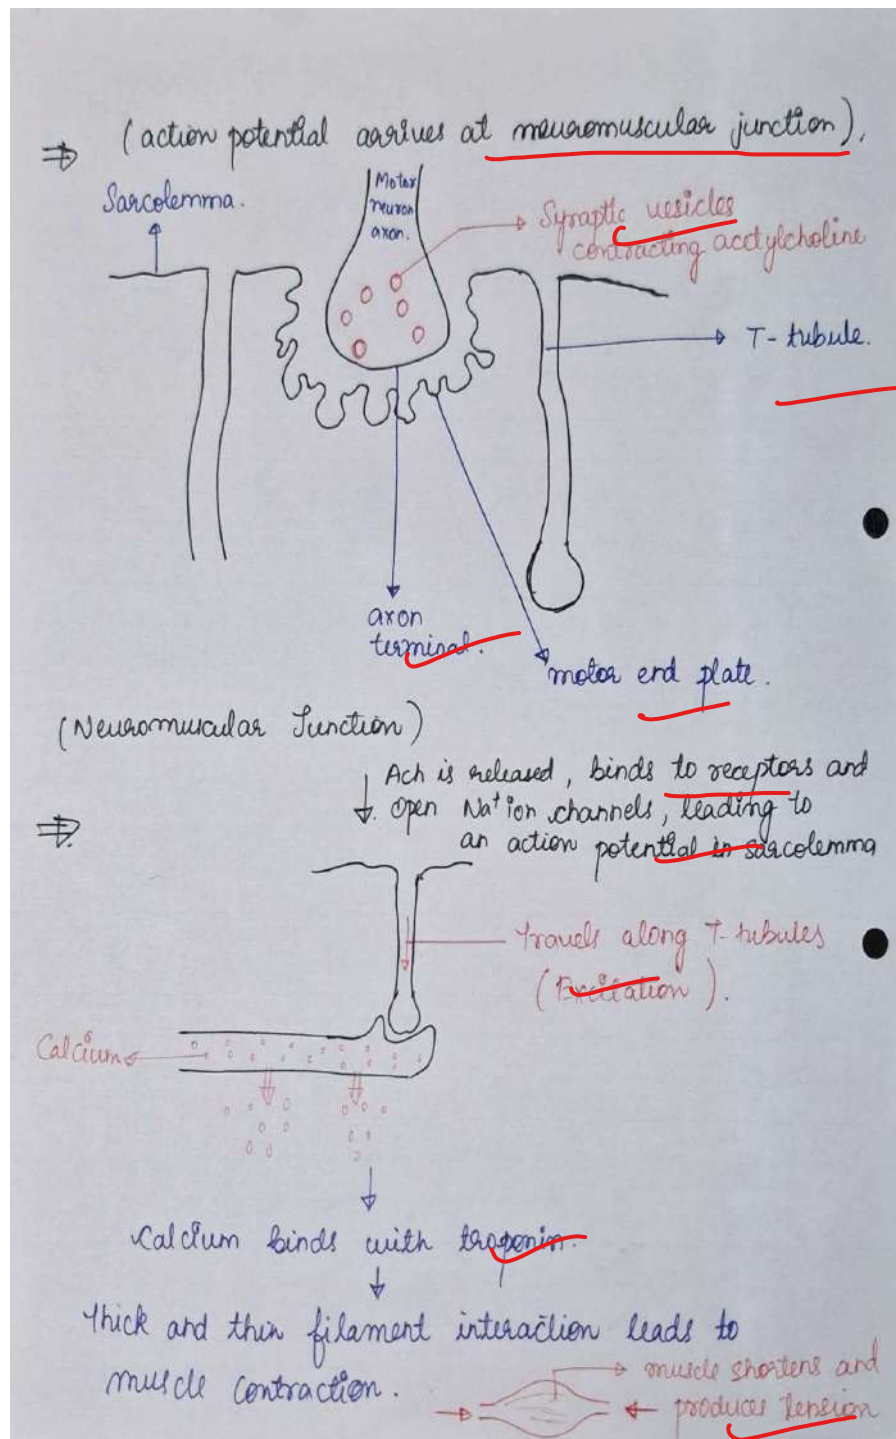 ⇒ (action potential arrives at neuromuscular junction).
Sarcolemma.
Motor
neuron
axon.
Synaptic vesicles
contracting acetylcholine
T-tubule.
axon
terminal.
motor end plate.
(Neuromuscular Junction)
↓ Ach is released, binds to receptors and
open Na+ ion channels, leading to
an action potential in sarcolemma
⇒
Travels along T-tubules
(Excitation).
Calcium
Calcium binds with troponin.
Thick and thin filament interaction leads to
muscle contraction.
muscle shortens and
produces tension